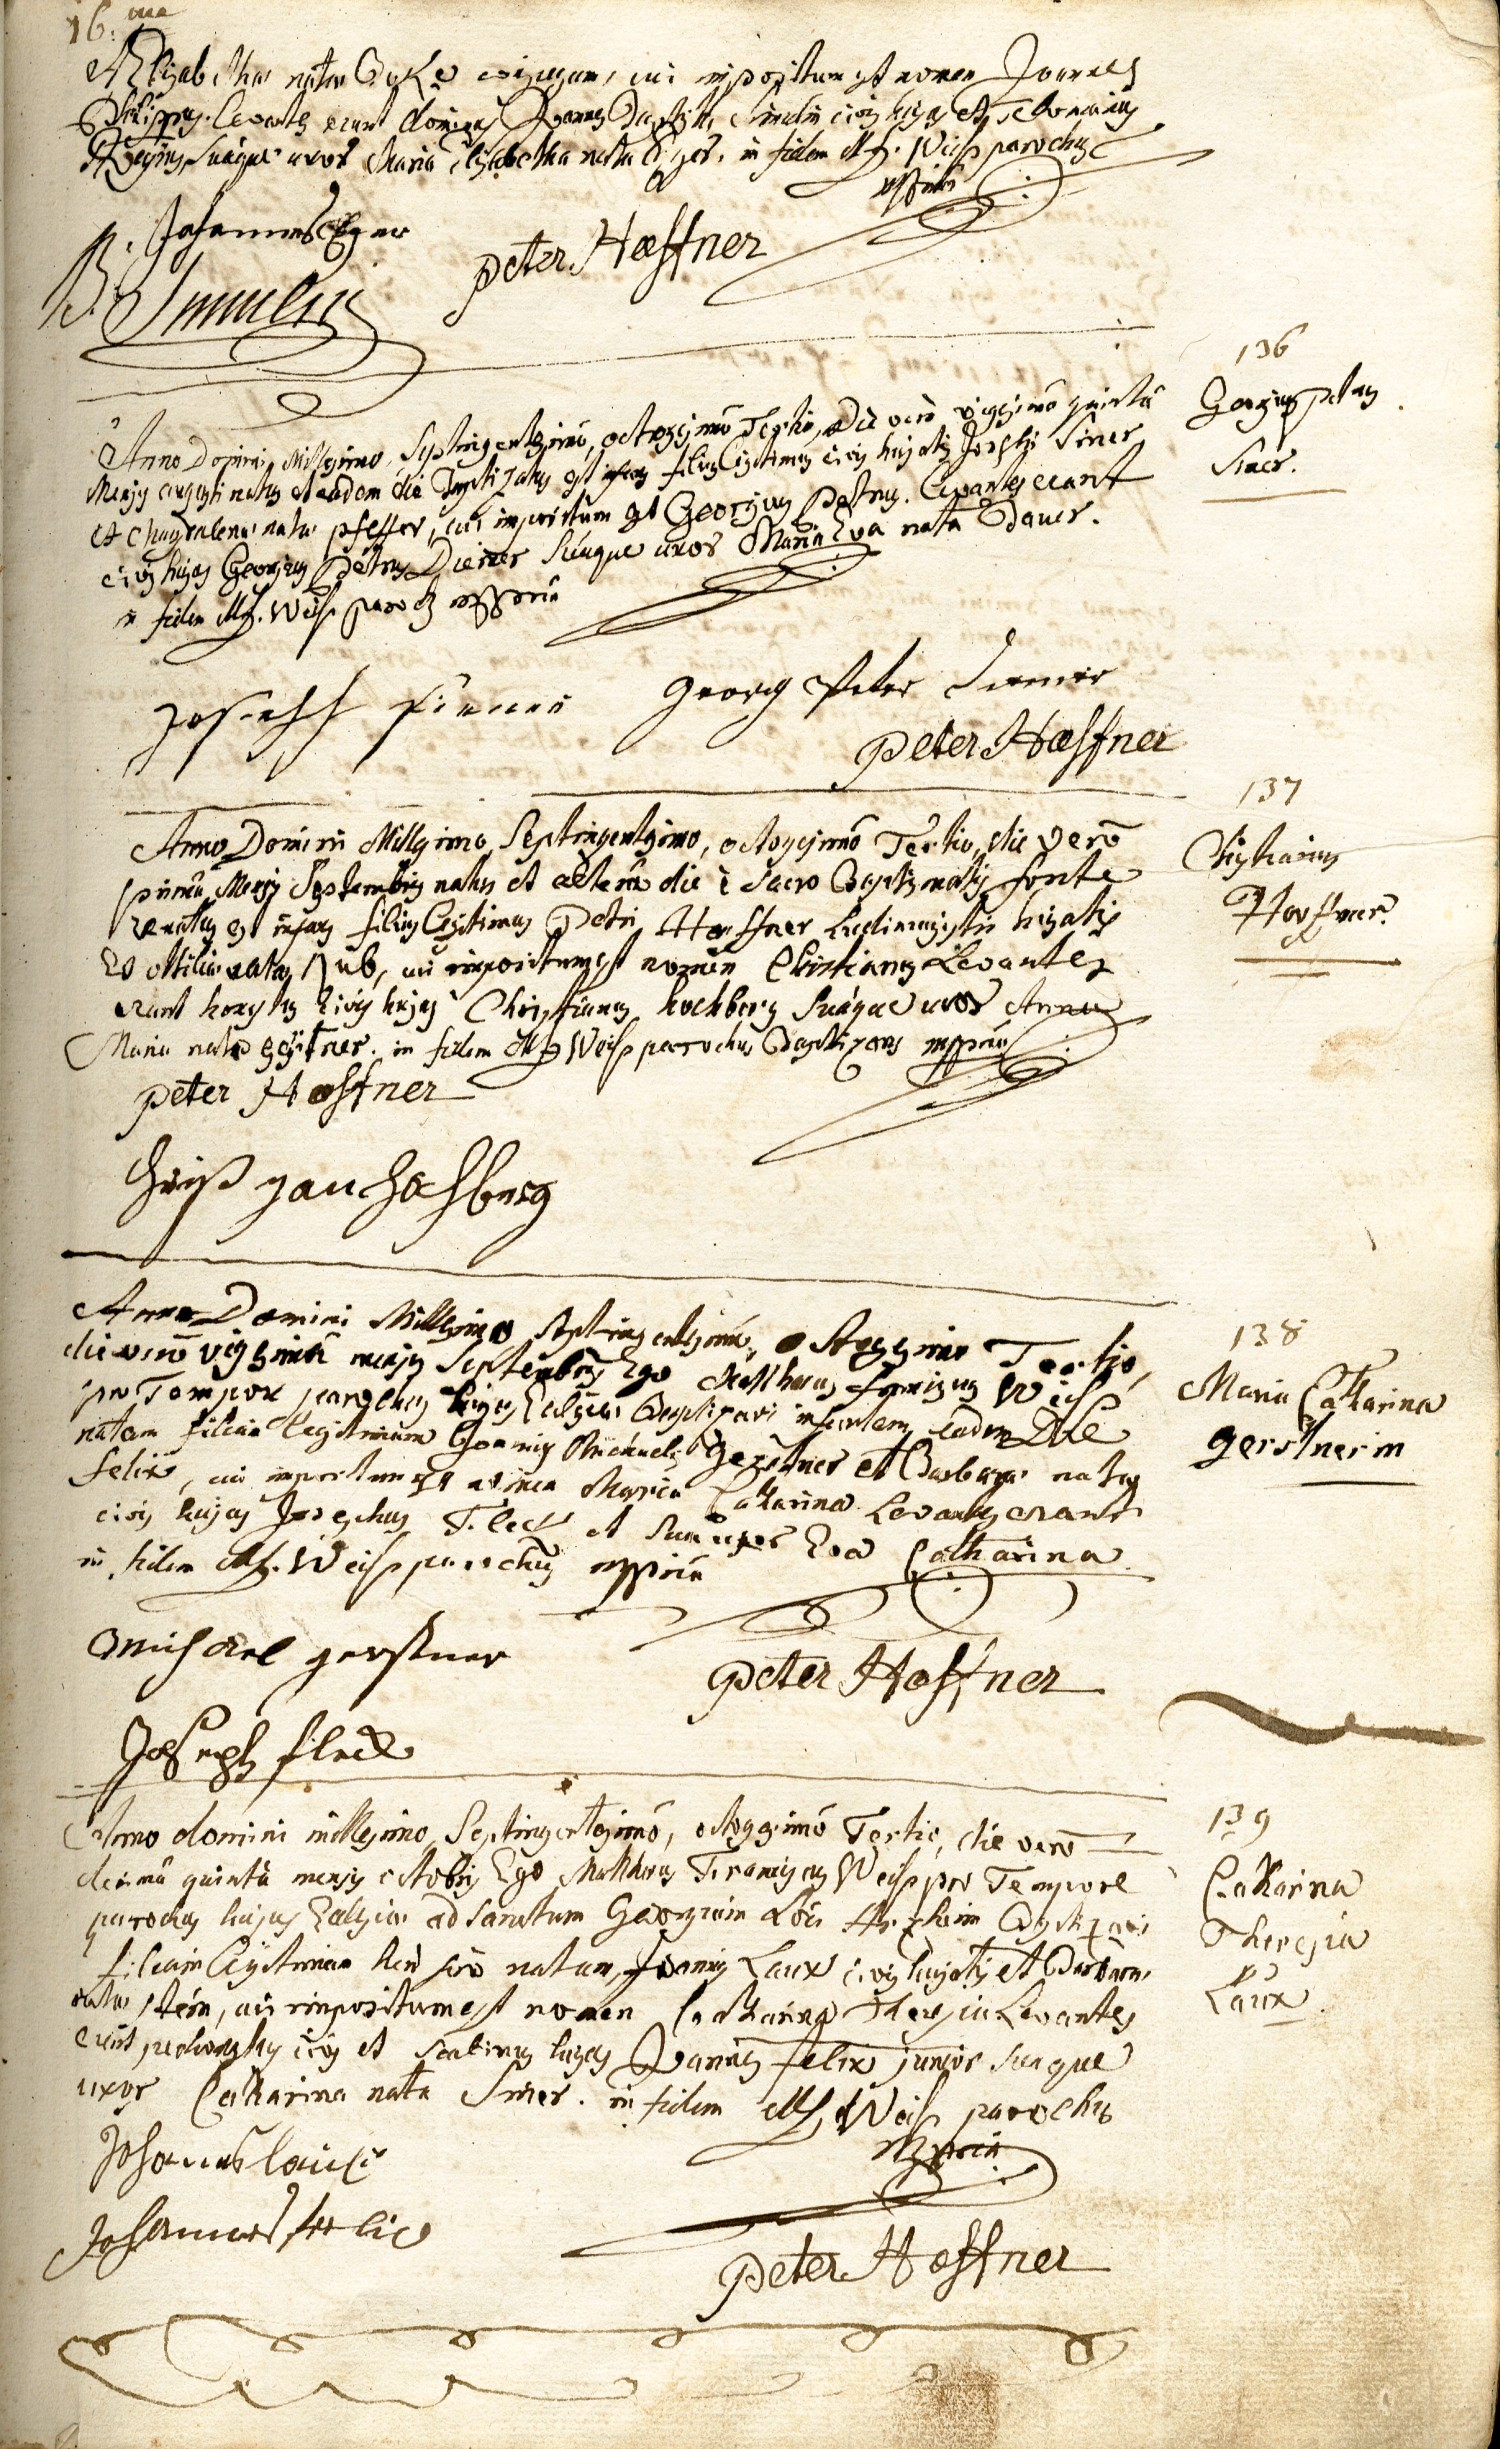 16. ma
Elisabetha nata conjugum, cui impositum est nomen Joannes
Philippus. Levantes erant Joannes civis hujas et
suaque uxor Maria Elisabetha nata Eger. in fidem Mf. Weis parochus
mppriâ
Johannes Eger
Peter Hoeffner
136
Georgius Petrus
Siner.
Anno Domini Millesimo, Septingentesimô, octogesimô Tertio, Die verô vigesimâ quintâ
Mensis augusti natus et eadem die Baptizatus est infans filius Legitimus civis hujatis Josephi Siner
et Magdalena nata Pfeffer, cui impositum est Georgius Petrus. Levantes erant
civis hujas Georgius Petrus Diener Suáque uxor Maria Eva nata Dauer.
in fidem Mf. Weis parochus mppriâ
Joseph
Georg Peter Diener
Peter Hoeffner
137
Christianus
Hoeffner.
Anno Domini Millesimo, Septingentesimo, octogesimô Tertio, die verô
primâ Mensis Septembris natus et alterâ die è Sacro Baptismatis fonte
renatus est infans filius Legitimus Petri Hoeffner Ludimagistri hujatis
et ottilia nata, cui impositum est nomen Christianus Levantes
erant honestus civis hujas Christianus hochberg Suáque uxor Anna
Maria nata in fidem Mf Weis parrochus Baptizans mppriâ
Peter Hoeffner
Christian Hochberg
138
Maria Catharina
gerstnerin
Anno Domini Millesimo Septingentesimô, octogesimo Tertio,
die verô vigesimâ mensis Septembris Ego Mathaeus franciscus Weis
pro Tempore parochus hujas Ecclesiae Baptizavi infantem eadem Die
natam filiam Legitimam Joannis Michaelis gerstner et Barbara nata
felix, cui impositum est nomen Maria Catharina. Levantes erant
civis hujas Josephus Fleck et Sua uxor Eva Catharina
in fidem Mf. Weis parochus mppriâ
Michael gerstner
Peter Hoeffner
Joseph fleck
139
Catharina
Theresia
Laux
Anno domini millesimo, Septingentesimô, octogesimô Tertio, die verô
decimâ quintâ mensis octobris Ego Mathaeus Franciscus Weis pro Tempore
parochus hujas Ecclesiae ad Sanctum Georgium Loci Herxheim Baptizavi
filiam Legitimam natam, Joannis Laux civis hujatis et Barbara
nata, cui impositum est nomen Catharina Theresia Levantes
erant civis et Scabinus hujas Joannes felix junior Suaque
uxor Catharina nata Siner. in fidem Mf Weis parochus
mppriâ
Johannes laux
Johannes felix
Peter Hoeffner